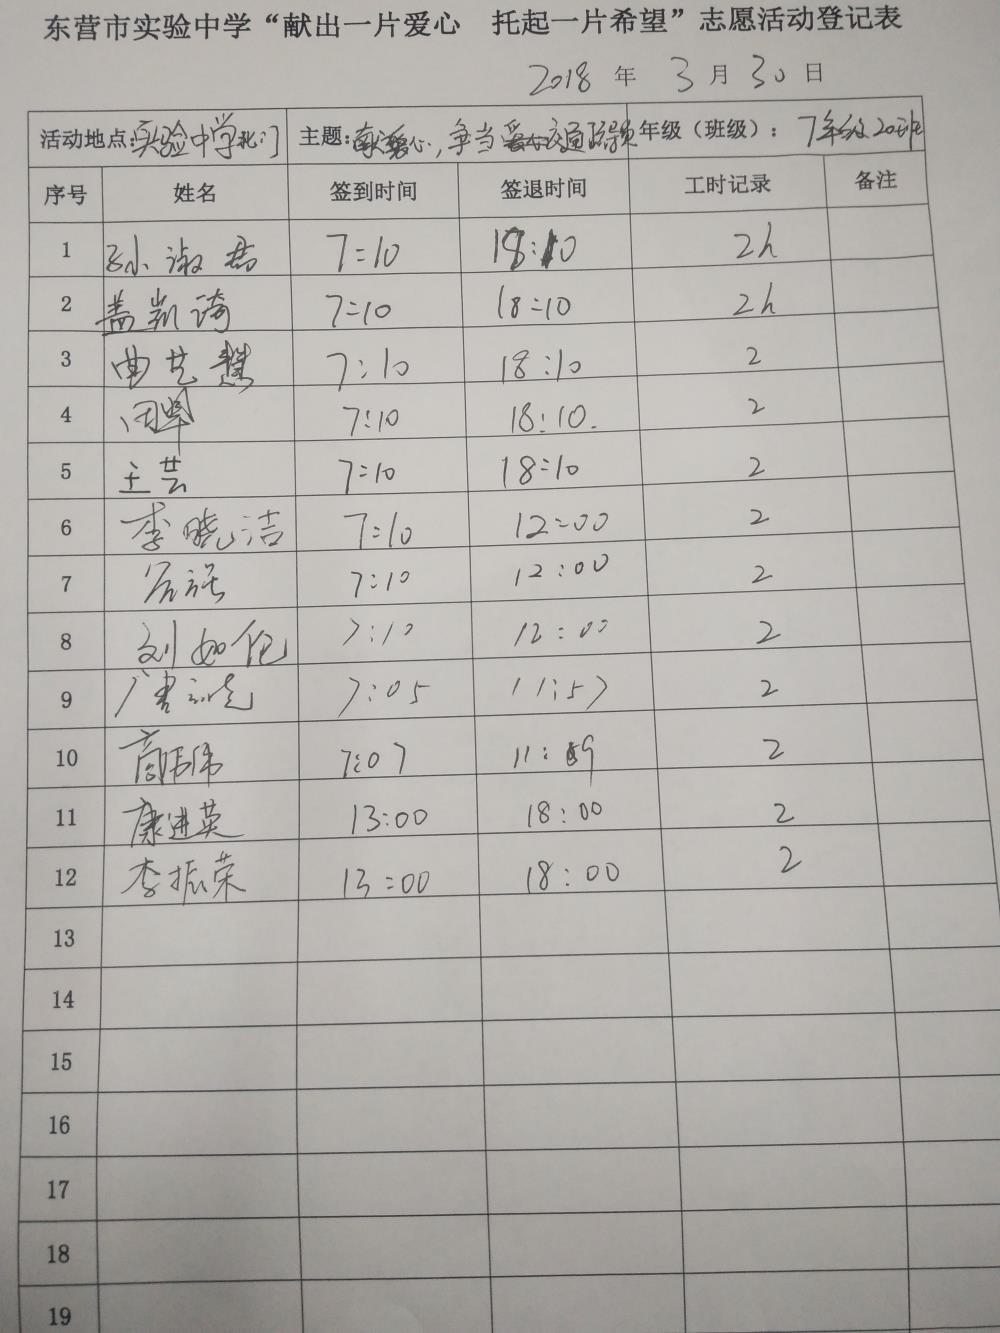 东营市实验中学“献出一片爱心 托起一片希望”志愿活动登记表
2018 年 3 月 30 日
活动地点:实验中学北门 主题:献爱心,争当交通 年级(班级):7年级20班
序号 姓名 签到时间 签退时间 工时记录 备注
1 孙淑君 7:10 18:10 2h
2 盖凯琦 7:10 18:10 2h
3 曲艺慧 7:10 18:10 2
4 7:10 18:10. 2
5 王芸 7:10 18:10 2
6 李晓洁 7:10 12:00 2
7 7:10 12:00 2
8 刘如 7:10 12:00 2
9 7:05 11:57 2
10 商伟 7:07 11:59 2
11 康进英 13:00 18:00 2
12 李振荣 13:00 18:00 2
13
14
15
16
17
18
19